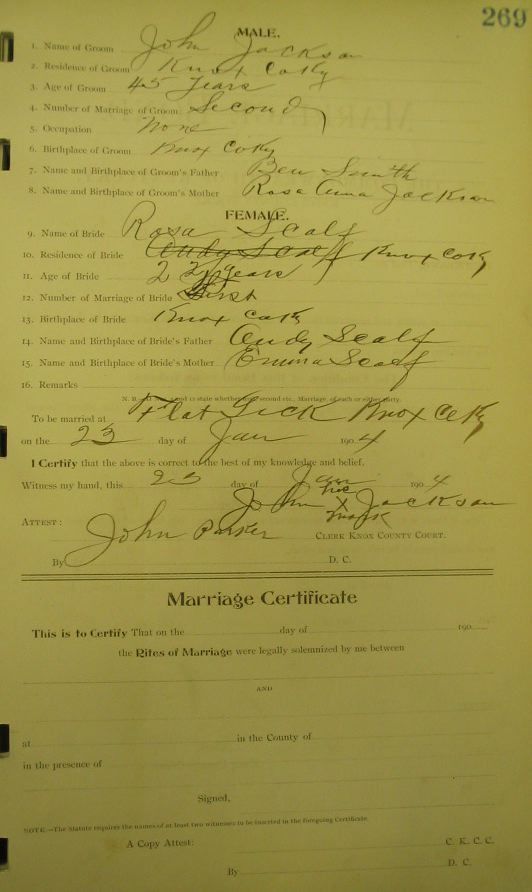 269
MALE.
1. Name of Groom John Jackson
2. Residence of Groom Knox Co Ky
3. Age of Groom 45 years
4. Number of Marriage of Groom Second
5. Occupation None
6. Birthplace of Groom Knox Co Ky
7. Name and Birthplace of Groom's Father Ben Smith
8. Name and Birthplace of Groom's Mother Rosa Anna Jackson
FEMALE.
9. Name of Bride Rosa Scalf
10. Residence of Bride Andy Scalf Knox Co Ky
11. Age of Bride 22 years
12. Number of Marriage of Bride First
13. Birthplace of Bride Knox Co Ky
14. Name and Birthplace of Bride's Father Andy Scalf
15. Name and Birthplace of Bride's Mother Emma Scalf
16. Remarks
N. B. state whether second etc., Marriage, of each or either party.
To be married at Flat Lick Knox Co Ky
on the 23 day of Jan 1904
I Certify that the above is correct to the best of my knowledge and belief.
Witness my hand, this 23 day of Jan 1904
his
John X Jackson
mark
ATTEST:
John Parker CLERK KNOX COUNTY COURT.
By D. C.
Marriage Certificate
This is to Certify That on the day of 190
the Rites of Marriage were legally solemnized by me between
AND
at in the County of
in the presence of
Signed,
NOTE.—The Statute requires the names of at least two witnesses to be inserted in the foregoing Certificate.
A Copy Attest: C. K. C. C.
By D. C.